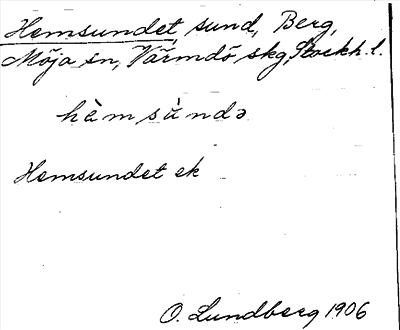 Hemsundet, sund, Berg,
Möja sn, Värmdö skg, Stockh. l.
hèmsùndə
Hemsundet ek
O. Lundberg 1906